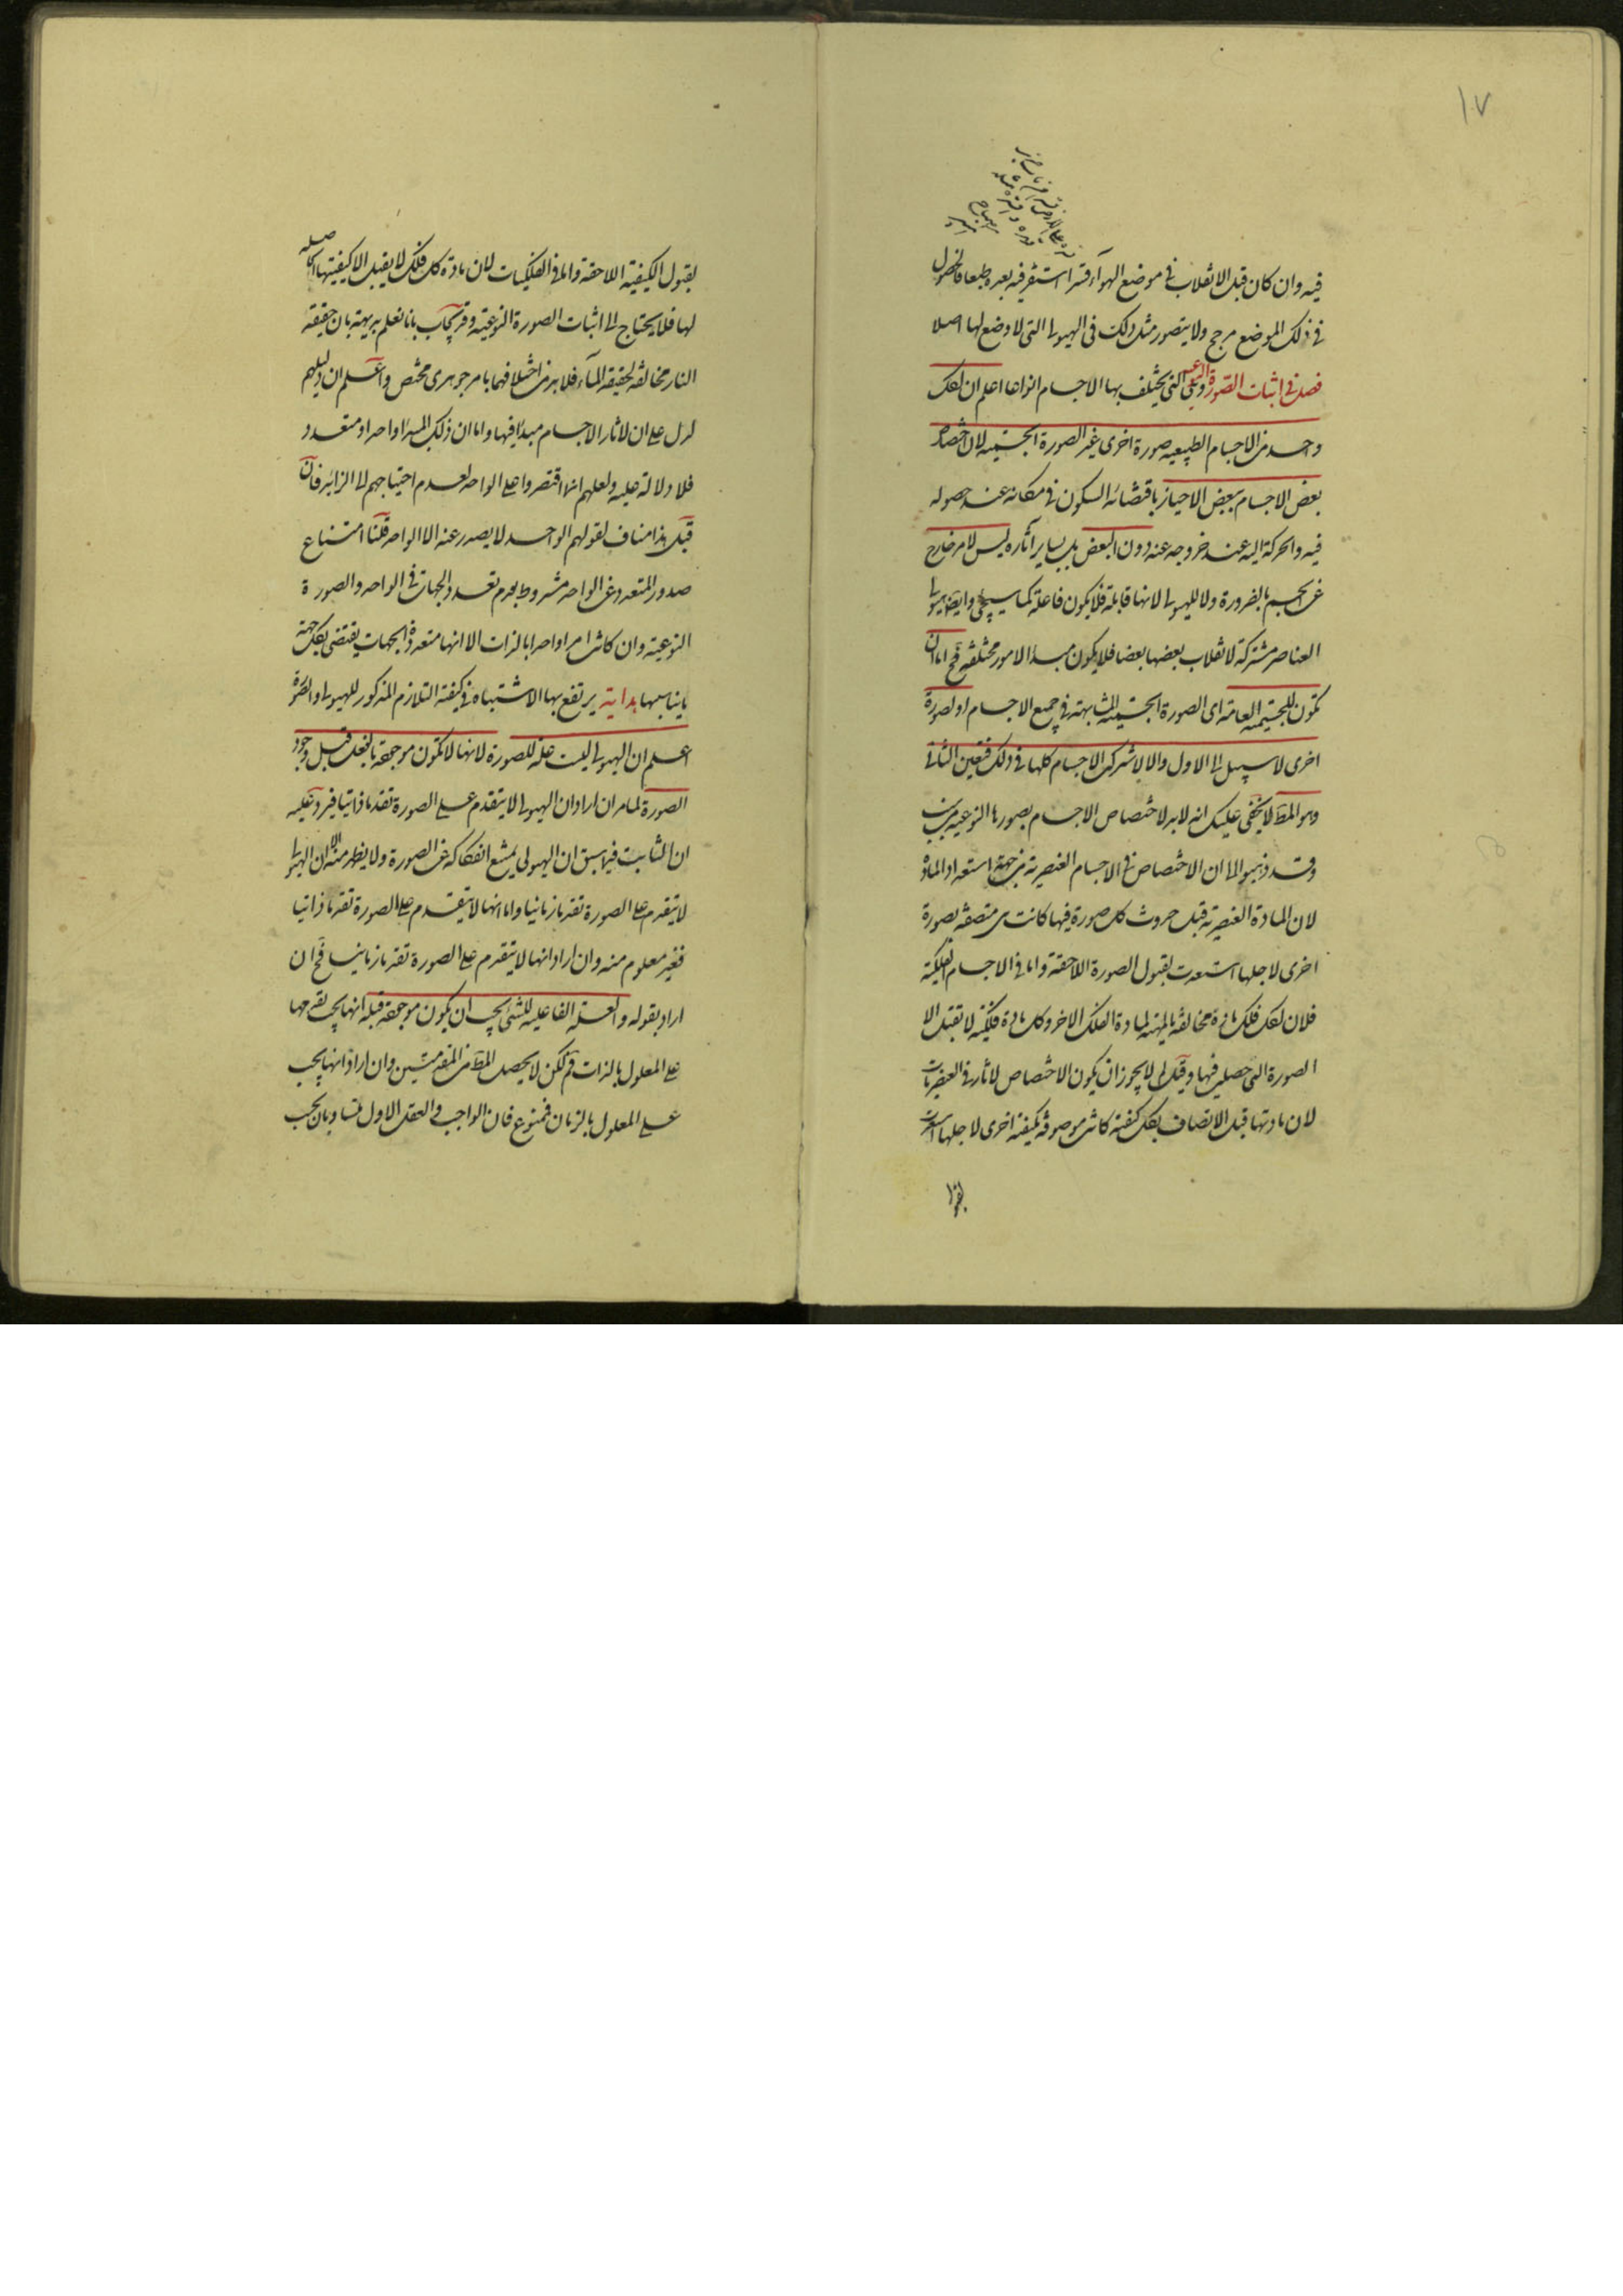 ١٧
فيه وان كان قبل الانقلاب فى موضع الهوآء قسرا استقر فيه بعده طبعا فالحصول
فى ذلك الموضع مرجح ولا يتصور مثل ذلك فى الهيولى التى لا وضع لها اصلا
فصل فى اثبات الصورة النوعية وهى التى يختلف بها الاجسام انواعا اعلم ان لكل
واحد من الاجسام الطبيعيه صورة اخرى غير الصورة الجسميه لان اختصاص
بعض الاجسام ببعض الاحياز باقتضائه السكون فى مكانه عند حصوله
فيه والحركة اليه عند خروجه عنه دون البعض بل بساير آثاره ليس لامر خارج
عن الجسم بالضرورة ولا للهيولى لانها قابلة فلا يكون فاعلة كما سيجئ وايضا هيولى
العناصر مشتركة لانقلاب بعضها بعضا فلا يكون مبدأ لامور مختلفة فح اما ان
تكون للجسمية العامة اى الصورة الجسمية المتشابهة فى جميع الاجسام او لصورة
اخرى لا سبيل الى الاول والا لاشترك الاجسام كلها فى ذلك فتعين الثانى
وهو المط لا يخفى عليك انه لابد لاختصاص الاجسام بصورها النوعيه من سبب
وقد ذهبوا الى ان الاختصاص فى الاجسام العنصرية من جهة استعداد المادة
لان المادة العنصرية قبل حدوث كل صورة فيها كانت متصفة بصورة
اخرى لاجلها استعدت لقبول الصورة اللاحقة واما فى الاجسام الفلكية
فلان لكل فلك مادة مخالفة بالمهية لمادة الفلك الاخر وكل مادة فلكية لا تقبل الا
الصورة التى حصلت فيها وقيل لم لا يجوز ان يكون الاختصاص لاثار فى العنصريات
لان مادتها قبل الاتصاف بكل كيفية كانت موصوفة بكيفية اخرى لاجلها استعدت
لقبول
بقبول الكيفية اللاحقة واما فى الفلكيات لان مادة كل فلك لا يقبل الا كيفيتها الحاصلة
لها فلا يحتاج الى اثبات الصورة النوعية وقد يجاب بانا نعلم بديهة بان حقيقة
النار مخالفة لحقيقة المآء فلا بد من اختلافهما بامر جوهرى مختص واعلم ان دليلهم
لو دل على ان لاثار الاجسام مبدأ فيها واما ان ذلك المبدأ واحد او متعدد
فلا دلالة عليه ولعلهم انما اقتصروا على الواحد لعدم احتياجهم الى الزائد فان
قيل هذا مناف لقولهم الواحد لا يصدر عنه الا الواحد قلنا امتناع
صدور المتعدد عن الواحد مشروط بعدم تعدد الجهات فى الواحد والصورة
النوعية وان كانت امرا واحدا بالذات الا انها متعددة الجهات يقتضى بكل جهة
ما يناسبها هداية يرتفع بها الاشتباه فى كيفية التلازم المذكور للهيولى والصورة
اعلم ان الهيولى ليست علة للصورة لانها لا تكون موجودة بالفعل قبل وجود
الصورة لما مر ان اراد ان الهيولى لا يتقدم على الصورة تقدما ذاتيا فيرد عليه
ان الثابت فيما سبق ان الهيولى يمتنع انفكاكه عن الصورة ولا يظهر منه الا ان الهيولى
لا يتقدم على الصورة تقدما زمانيا واما انها لا يتقدم على الصورة تقدما ذاتيا
فغير معلوم منه وان اراد انها لا يتقدم على الصورة تقدما زمانيا فح ان
اراد بقوله والعلة الفاعلية للشئ يجب ان يكون موجودة قبله انها يجب تقدمها
على المعلول بالذات فم لكن لا يحصل المط من المقدمتين وان اراد انها يجب
على المعلول بالزمان فممنوع فان الواجب والعقل الاول متساويان بحسب